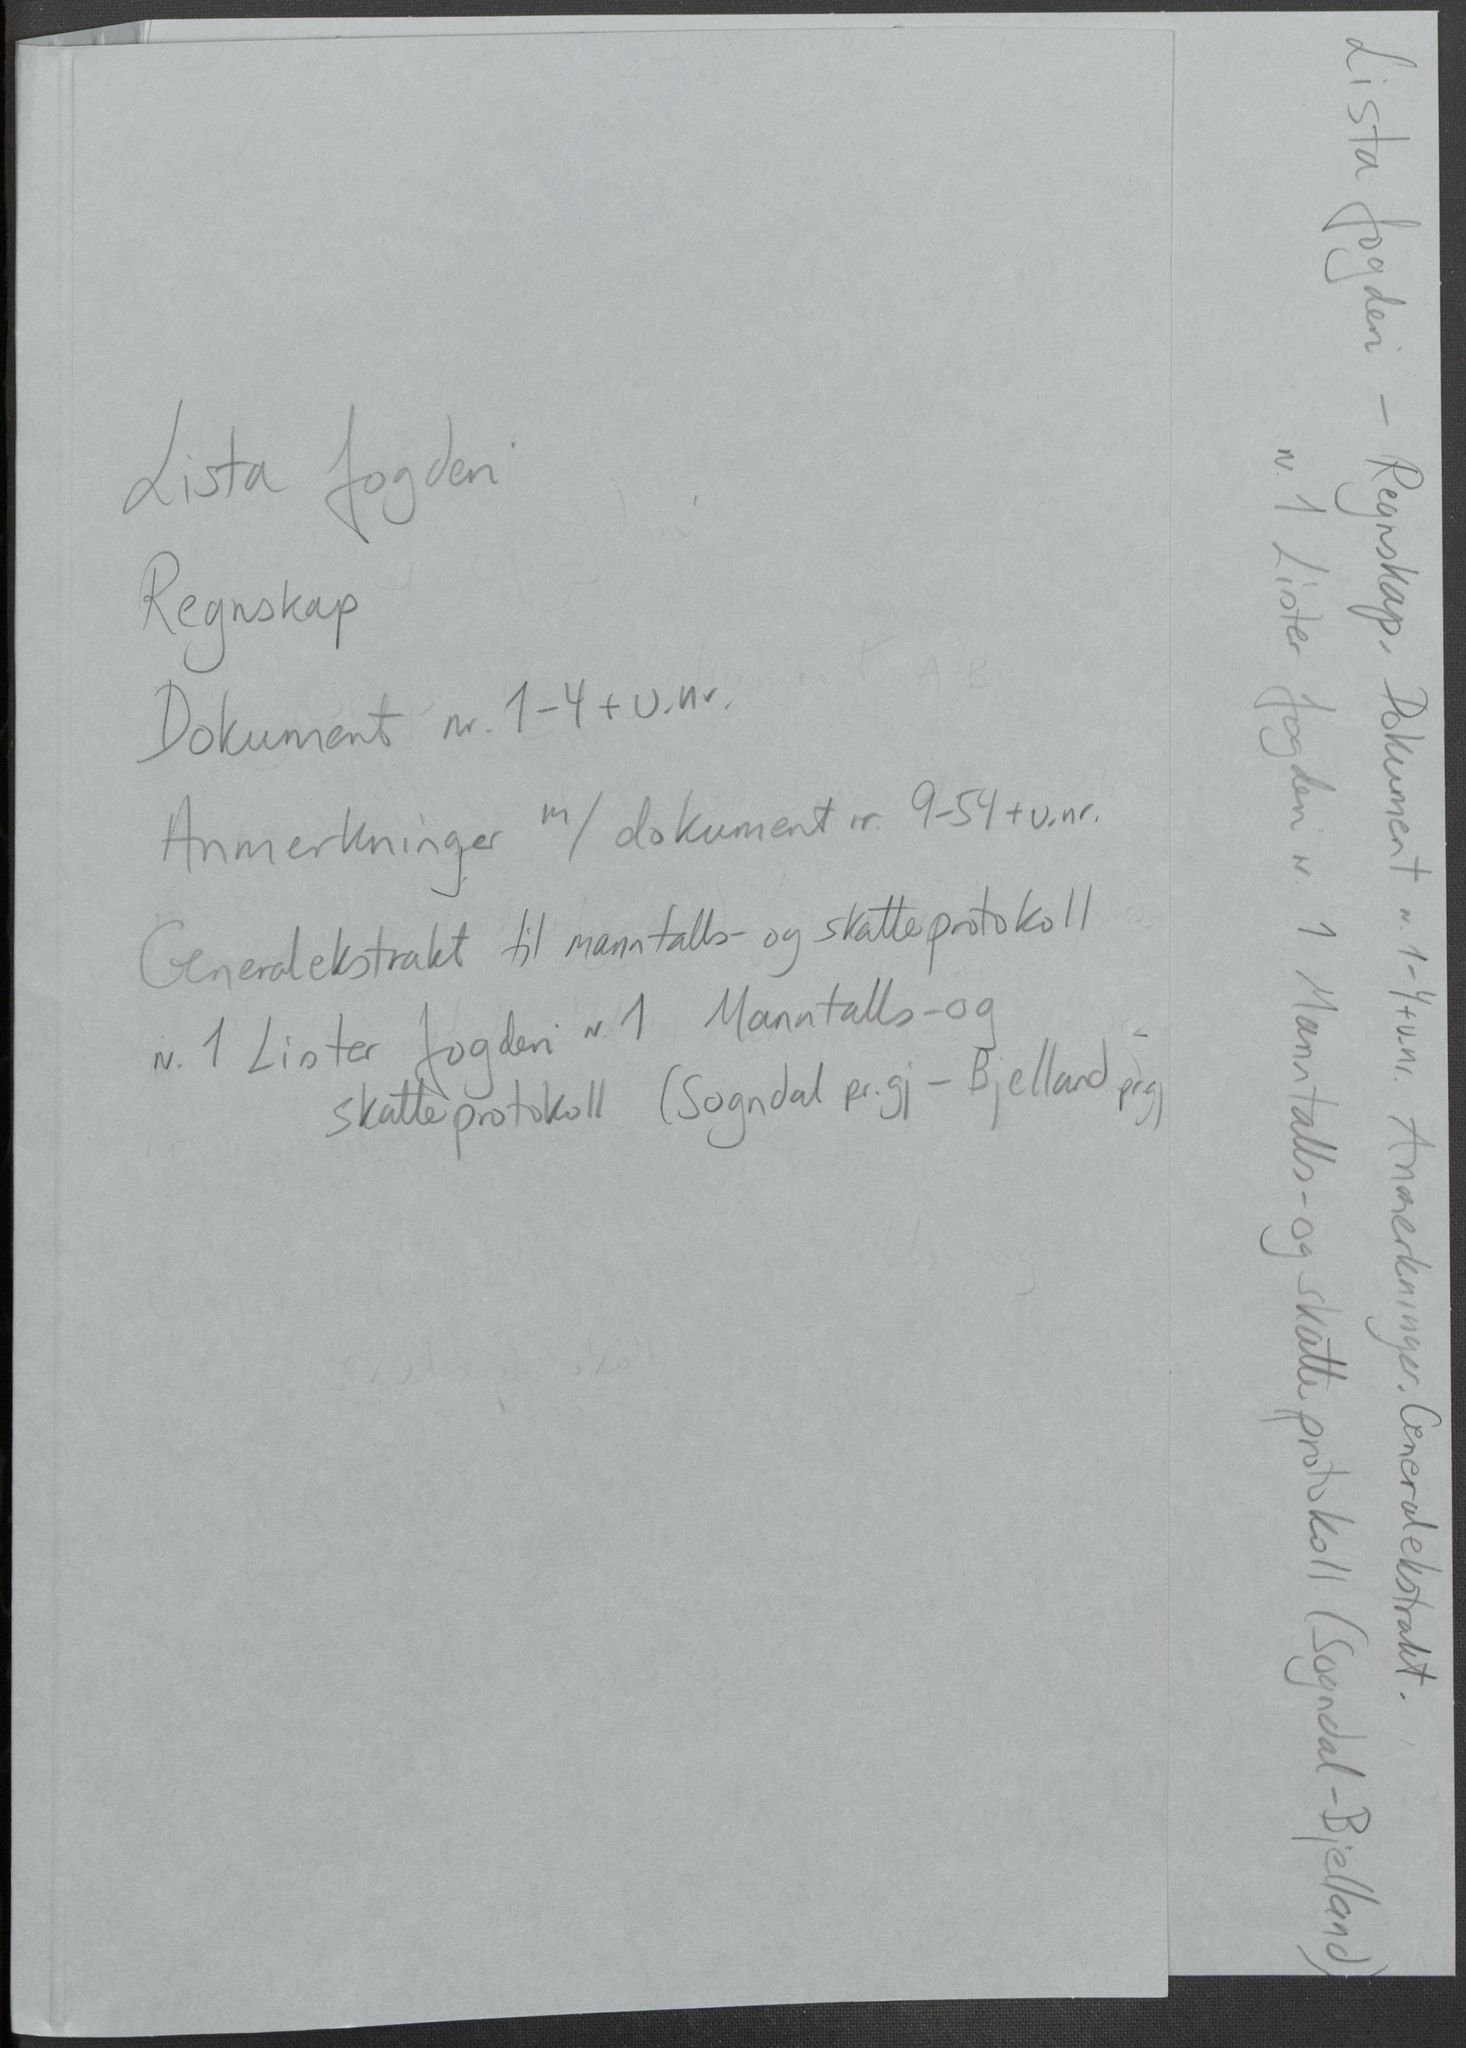 Lista fogderi
Regnskap
Dokument nr. 1-4 + u.nr.
Anmerkninger m/ dokument nr. 9-54 + u.nr.
Generalekstrakt til manntalls- og skatteprotokoll
nr. 1 Lister fogderi nr. 1 Manntalls- og
skatteprotokoll (Sogndal pr.gj - Bjelland pr.gj
Lista fogderi - Regnskap. Dokument nr. 1-4 + u.nr. Anmerkninger. Generalekstrakt.
nr. 1 Lister fogderi nr. 1 Manntalls- og skatteprotokoll (Sogndal - Bjelland)